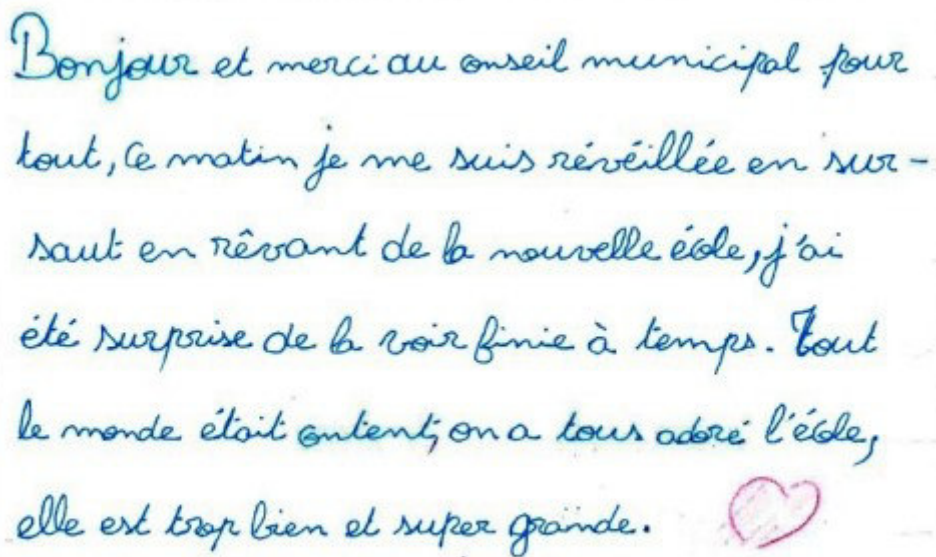 Bonjour et merci au conseil municipal pour
tout, Ce matin je me suis réveillée en sur-
saut en rêvant de la nouvelle école, j'ai
été surprise de la voir finie à temps. Tout
le monde était content, on a tous adoré l'école,
elle est trop bien et super grande.